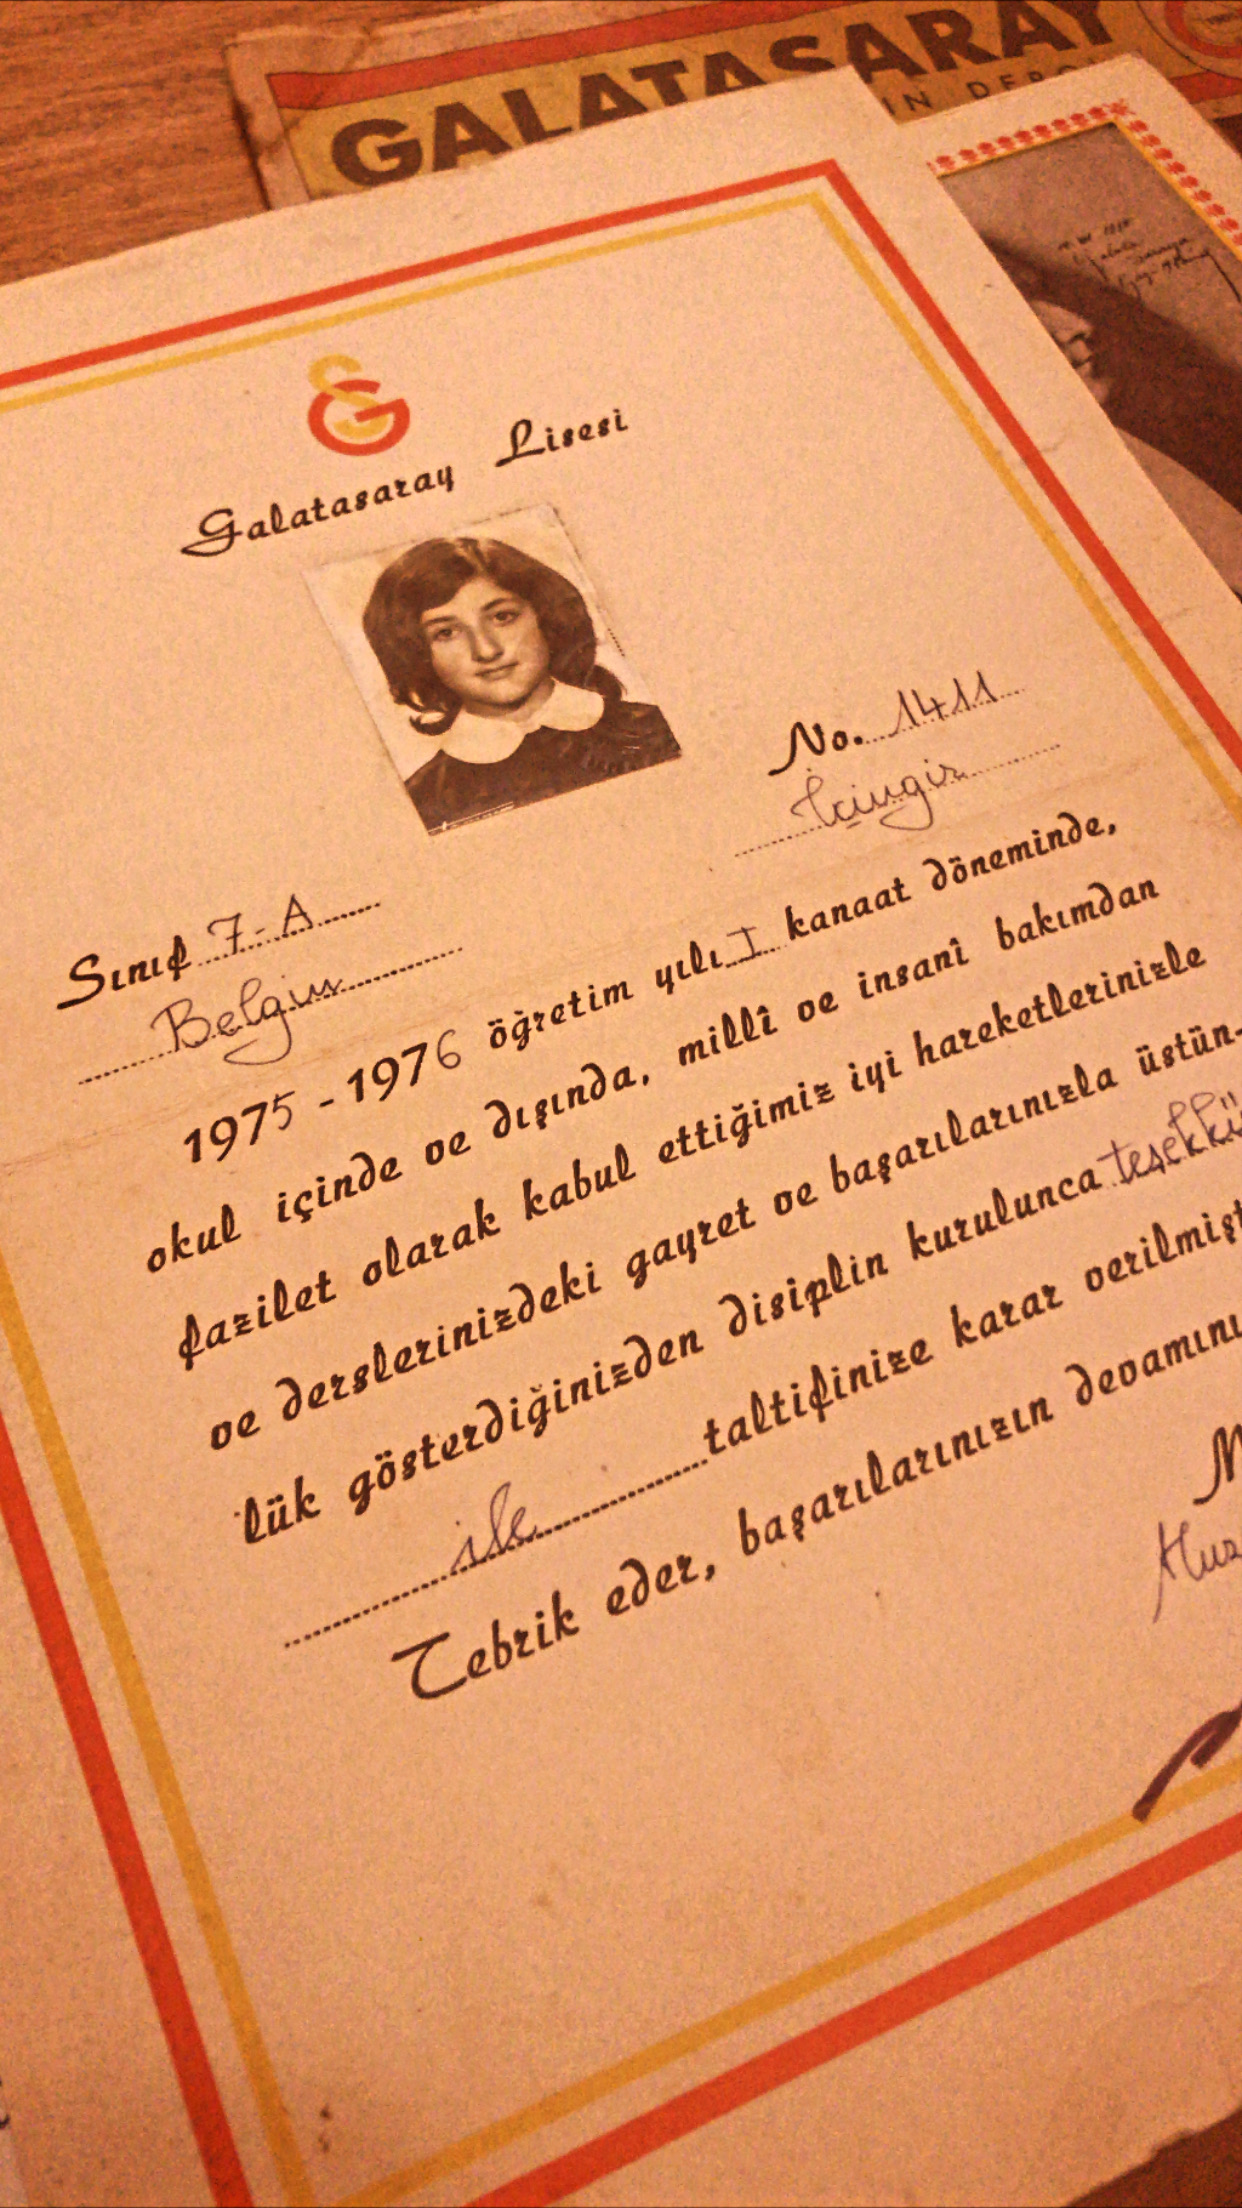 GALATASARAY
IN DERGİ
Galatasaray Lisesi
No. 1411
Sınıf 7-A
Belgin İçingir
1975 - 1976 öğretim yılı I kanaat döneminde,
okul içinde ve dışında, millî ve insanî bakımdan
fazilet olarak kabul ettiğimiz iyi hareketlerinizle
ve derslerinizdeki gayret ve başarılarınızla üstün-
lük gösterdiğinizden disiplin kurulunca teşekkü
ile taltifinize karar verilmişt
Tebrik eder, başarılarınızın devamını
M